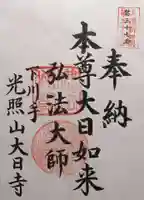 奉納
本尊大日如来
弘法大師
下川手
光照山大日寺